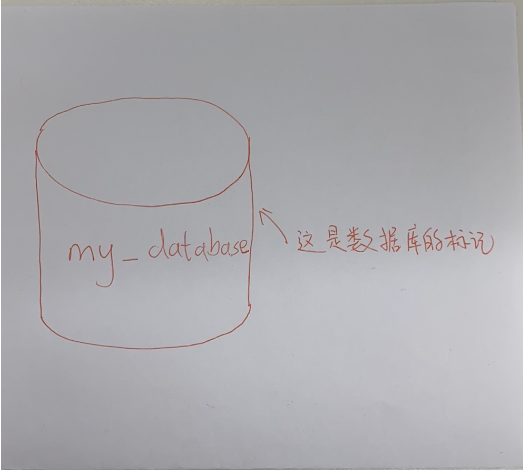 my_database
这是数据库的标记